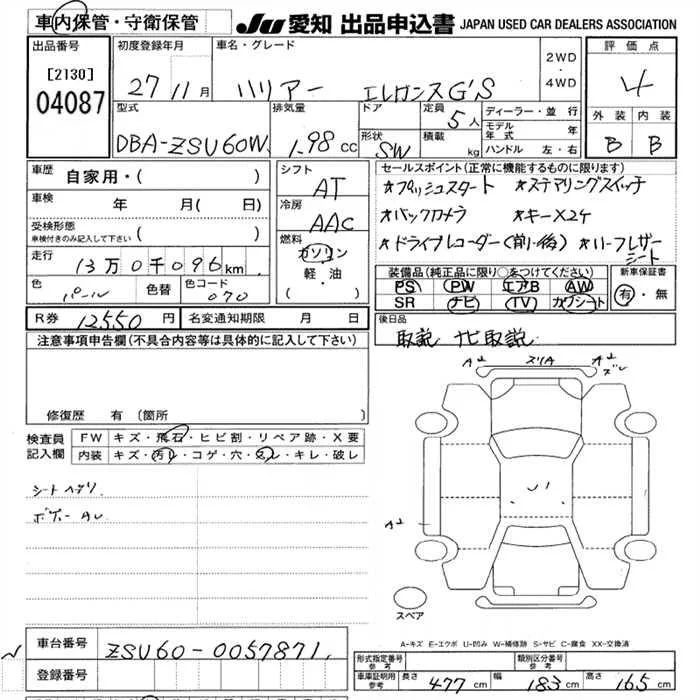 車内保管・守衛保管
JU 愛知 出品申込書 JAPAN USED CAR DEALERS ASSOCIATION
出品番号
[2130]
04087
初度登録年月
27 11月
車名・グレード
ハリアー エレガンスG'S
2WD
4WD
評価点
4
外装 内装
B B
型式
DBA-ZSU60W
排気量
1.98 cc
ドア
形状
SW
定員
5人
積載
kg
ディーラー・並行
モデル年式 年
ハンドル 左・右
車歴 自家用・( )
車検 年 月(日)
受検形態
車検付きのみ記入して下さい ( )
走行 13万0千096km
色 パール 色替 色コード 070
シフト
AT
冷房
AAC
燃料
ガソリン
軽・油
( )
セールスポイント(正常に機能するものに限ります)
*プッシュスタート *ステアリングスイッチ
*バックカメラ *キー×2ケ
*ドライブレコーダー(前後) *ハーフレザーシート
装備品(純正品に限り○をつけてください)
PS PW エアB AW
SR ナビ TV カワシート
新車保証書
有・無
R券 12550円 名変通知期限 月 日
後日品
取説 ナビ取説
注意事項申告欄(不具合内容等は具体的に記入して下さい)
修復歴 有(箇所
検査員記入欄
FW キズ・飛石・ヒビ割・リペア跡・X要
内装 キズ・汚れ・コゲ・穴・スレ・キレ・破レ
シートヘタリ
ボデーAU
スリA
スペア
A-キズ E-エクボ U-凹み W-補修跡 S-サビ C-腐食 XX-交換済
車台番号 ZSU60-0057871
登録番号
形式指定番号 参考
類別区分番号 参考
車庫証明用参考 長さ 477cm 幅 183cm 高さ 165cm